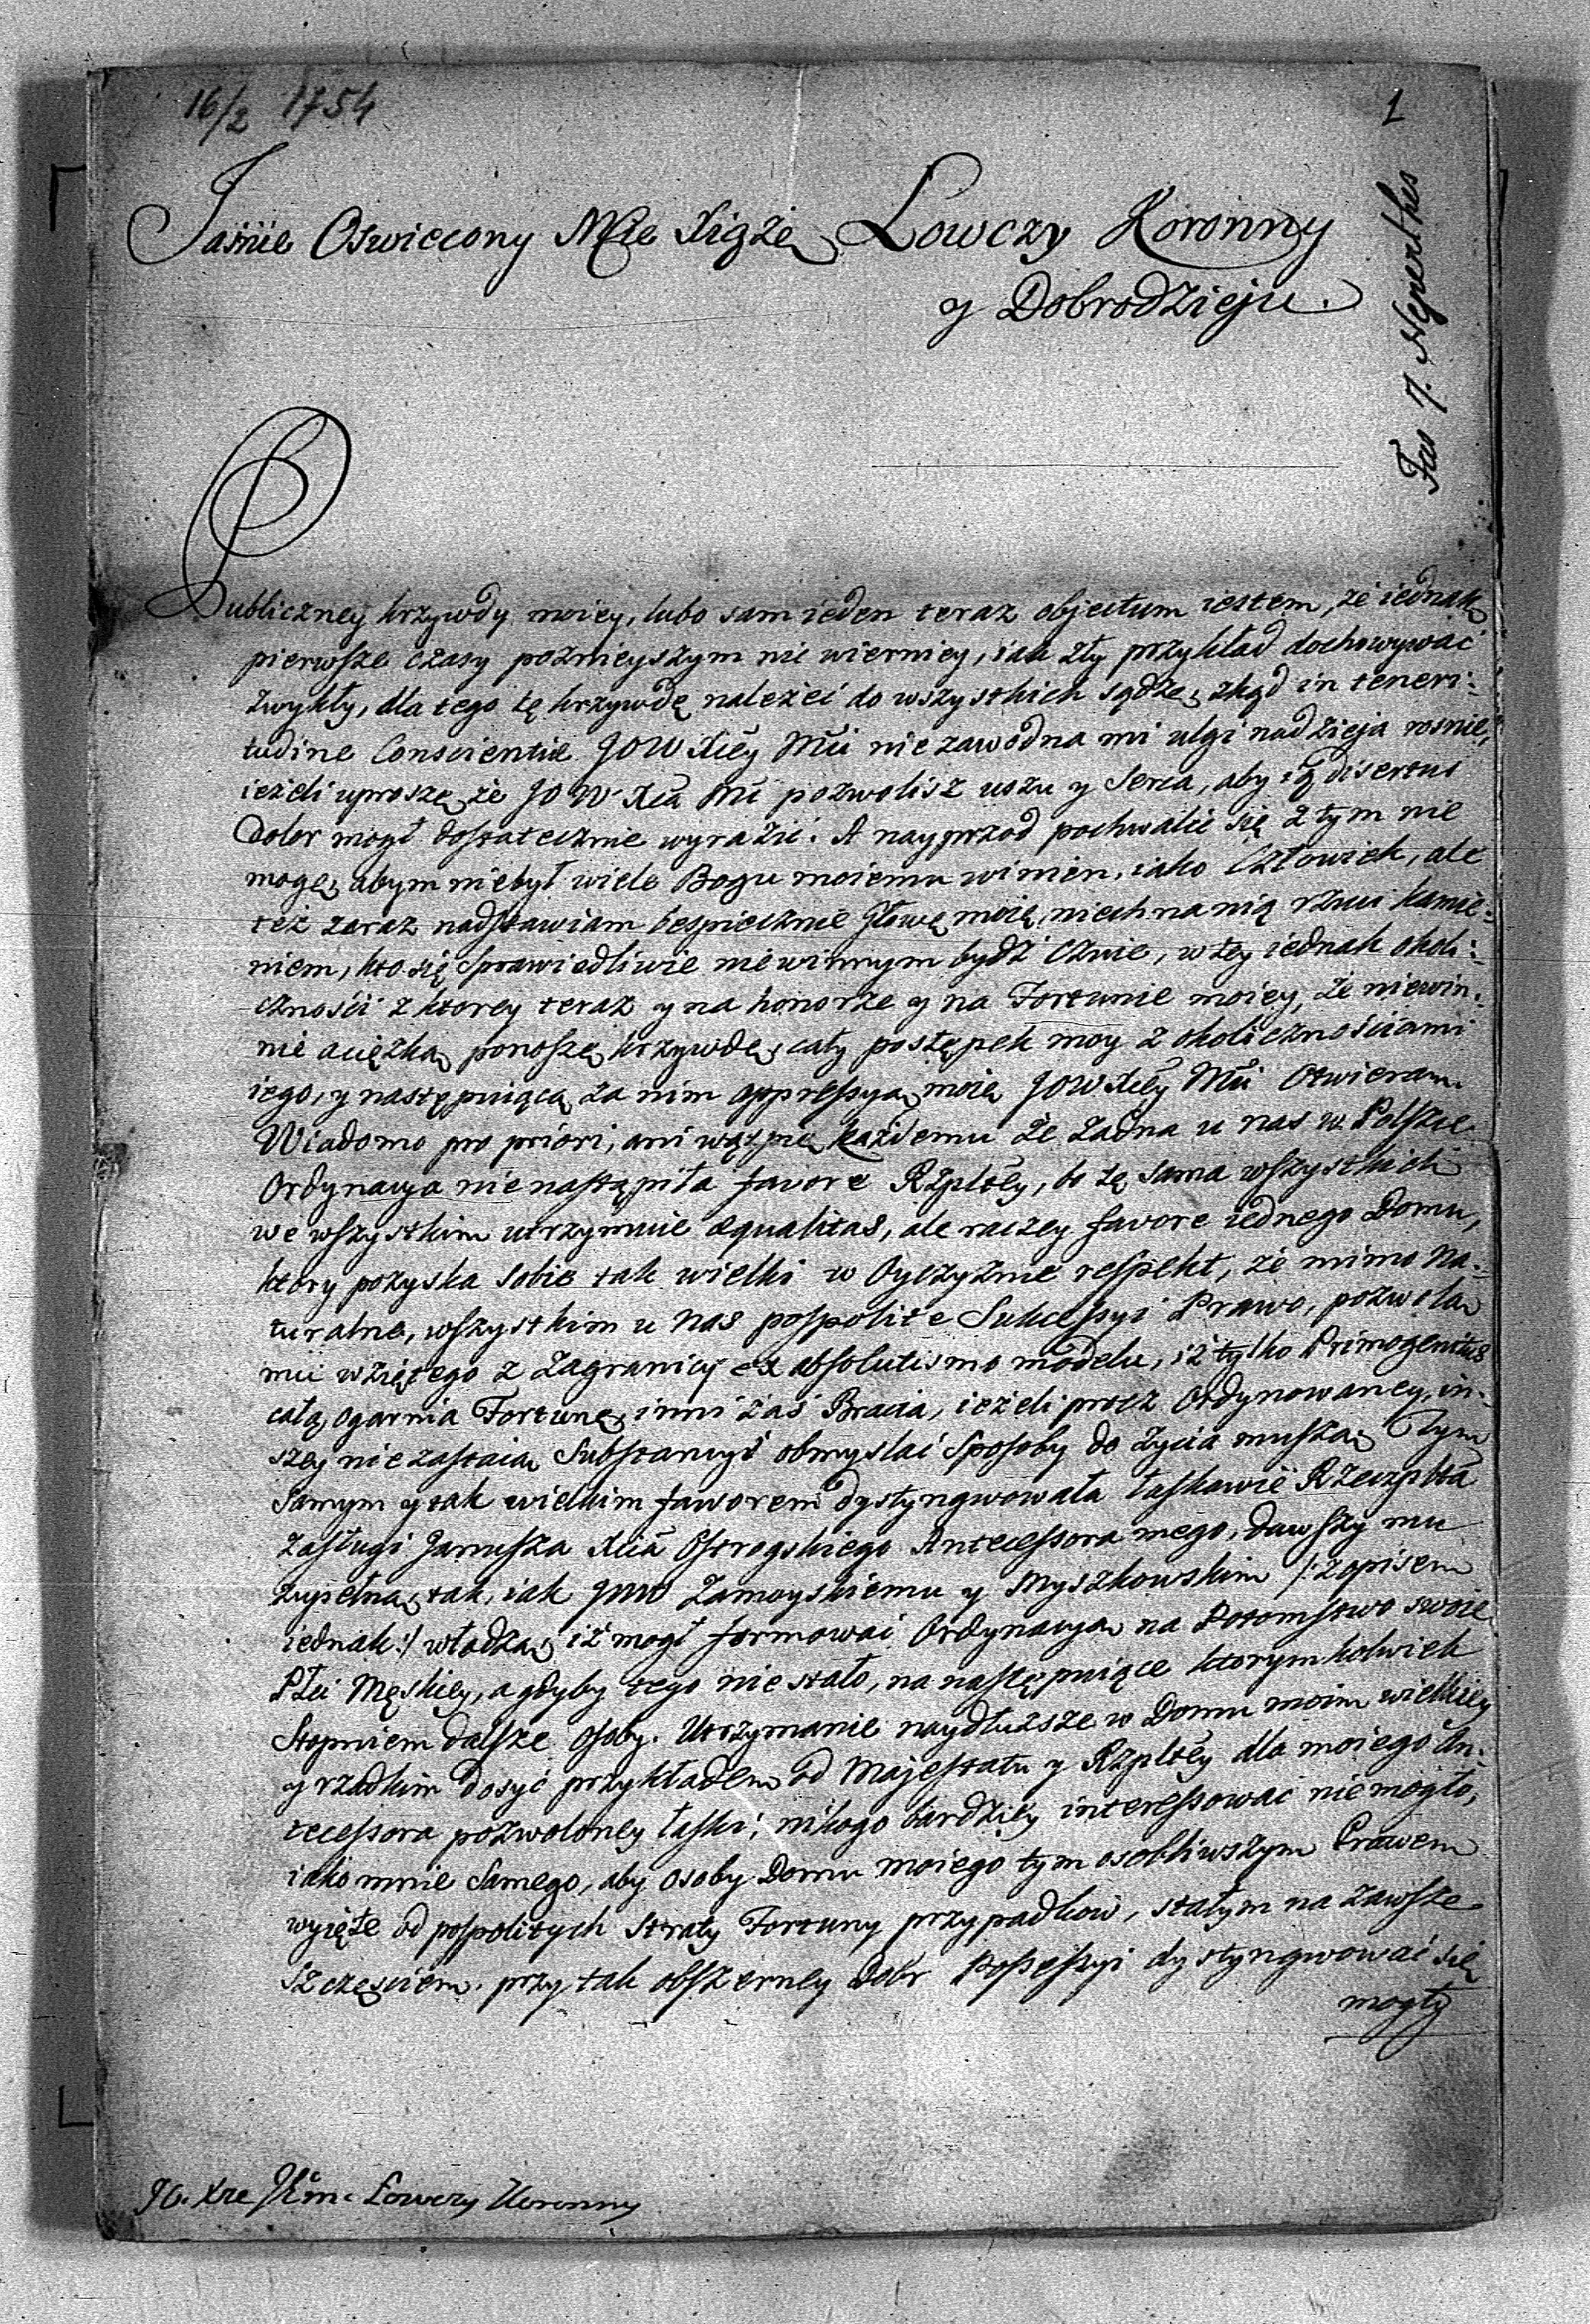 16/2 1754
1
Jaśnie Oswiecony Mśe Xiąże Łowczy Koronny
y Dobrodzieju.
Fas 7.
Publiczney krzywdy moiey, lubo sam ieden teraz objectum iestem, że iednak
pierwsze czasy poznieyszym nic wierniey, iak zły przykład dochowywać
zwykły, dla tego tę krzywdę należeć do wszystkich sądzę, zkąd in teneri:
tudine Conscientiæ JOWXćy Mći niezawodna mi ulgi nadzieja rosnie,
ieżeli uproszę, że JOWXća Mć pozwolisz uszu y serca, aby ią disertus
Dolor mogł dostatecznie wyrazić. A nayprzod pochwalić się z tym nie
mogę, abym niebył wiele Bogu moiemu winien, iako Człowiek, ale
też zaraz nadstawiam bespiecznie głowę moię, niech na nią rzuci kamie:
niem, kto się sprawiedliwie niewinnym bydź cznie, w tey iednak okoli:
cznośći z ktorey teraz y na honorze y na Fortunie moiey, że niewin:
nie a ciężką ponoszę krzywdę, cały postępek moy z okolicznościami
iego, y następuiącą za nim oppressyą moię JOWXćy Mći Otwieram.
Wiadomo pro priori, ani wątpię każdemu że żadna u nas w Polszcze
Ordynacya nienastąpiła favore Rzpltey, bo tę sama wszystkich
we wszystkim utrzymuie æqualitas, ale raczey favore iednego Domu,
ktory pozyska sobie tak wielki w Oyczyznie respekt, że mimo na:
turalne, wszystkim u nas pospolite Sukcessyi Prawo, pozwolą
mu wziętego z zagranicy ex absolutismo modelu, iż tylko Primogenitus
całą ogarnia Fortunę, inni zaś Bracia, ieżeli procz Ordynowaney, in:
szey nie zastaią Substancyi obmyslać sposoby do życia muszą. Tym
samym y tak wielkim faworem dystyngwowała łaskawie Rzeczplta
zasługi Janusza Xća Ostrogskiego Antecessora mego, dawszy mu
zupełną, tak, iak JWW Zamoyskiemu y Myszkowskim /: z opisem
iednak :/ władzą, iż mogł formować Ordynacyą na Potomstwo swoie
Płci Męskiey, a gdyby tego nie stało, na następuiące ktorymkolwiek
Stopniem dalsze osoby. Utrzymanie naydłuższe w Domu moim wielkiey
y rzadkim dosyć przykładem od Majestatu y Rzpltey dla moiego An:
tecessora pozwoloney łaski, nikogo bardziey interessować niemogło,
iako mnie samego, aby osoby Domu moiego tym osobliwszym Prawem
wyięte od pospolitych straty Fortuny przypadkow, stałym na zawsze
szczęściem przy tak obszerney Dobr Possessyi dystyngwować się
mogły
JO. Xże Jmć Łowczy Koronny